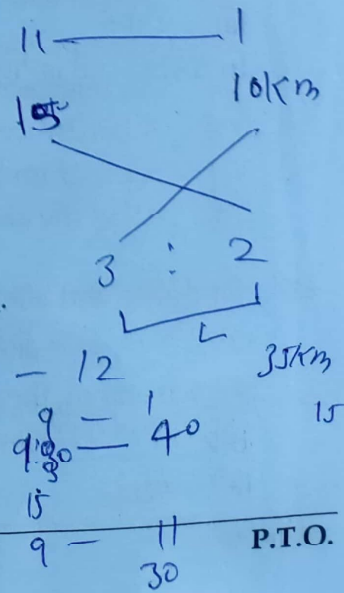 11 — 1
15 10km
3 : 2
— 12 35km
9 — 1
= 40 15
15
9 — 11 P.T.O.
30